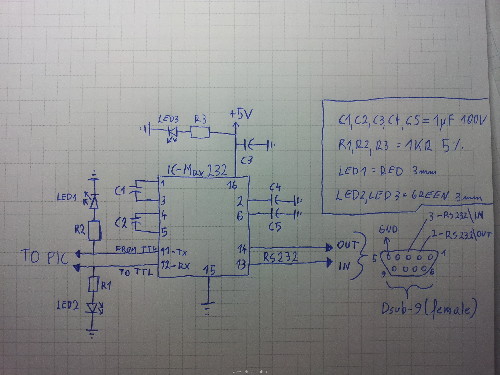 +5V
LED3
R3
C3
C1,C2,C3,C4,C5=1µF 100V
R1,R2,R3=1KΩ 5%
LED1=RED 3mm
LED2,LED3=GREEN 3mm
IC-Max232
1
16
C1
3
2
C4
4
6
C2
5
C5
LED1
R2
FROM TTL
11-TX
14
OUT
TO PIC
TO TTL
12-RX
15
13
RS232
IN
R1
LED2
3-RS232\IN
2-RS232\OUT
GND
5
1
9
6
Dsub-9(female)